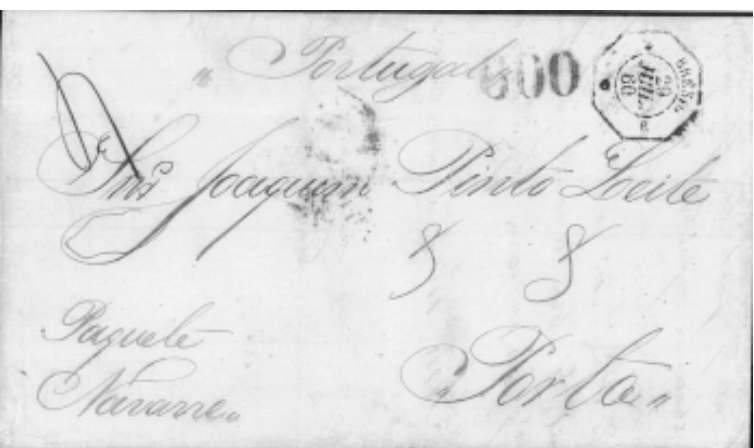 " Portugal "
600
BRÉSIL
29
JUIL.
60
Snr Joaquim Pinto Leite
Paquete
Navarre "
" Porto "